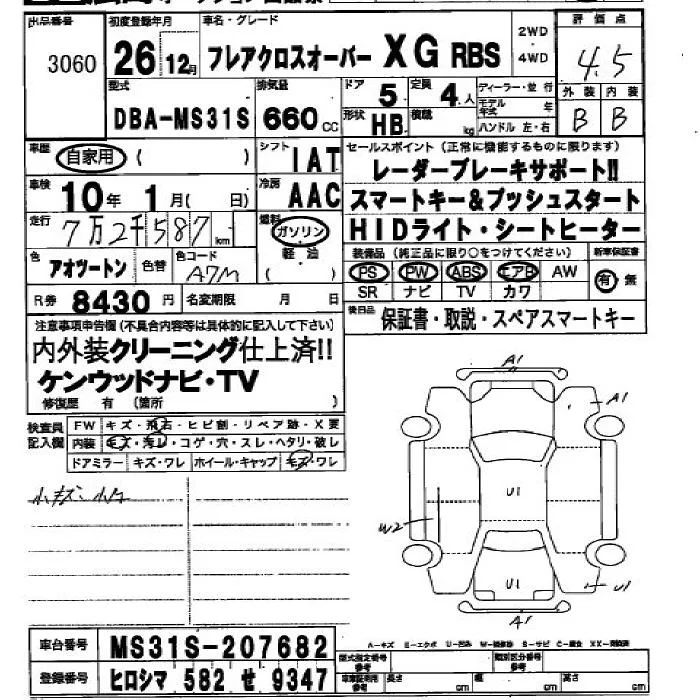 出品番号 初度登録年月 車名・グレード 2WD 4WD 評価点
3060 26年 12月 フレアクロスオーバー XG RBS 4.5
型式 排気量 ドア 定員 ディーラー・並行 外装 内装
DBA-MS31S 660cc 5 4人 モデル年式 年 B B
形状 HB 積載 kg ハンドル 左・右
車歴 自家用 ( ) シフト IAT セールスポイント (正常に機能するものに限ります)
レーダーブレーキサポート!!
車検 10年 1月 ( 日) 冷房 AAC スマートキー&プッシュスタート
走行 7万2千587km 燃料 ガソリン HIDライト・シートヒーター
軽油 ( )
色 アオツートン 色替 色コード A7M
装備品 (純正品に限り○をつけてください) 新車保証書
PS PW ABS エアB AW 有・無
SR ナビ TV カワ
R券 8430円 名変期限 月 日
後日品 保証書・取説・スペアスマートキー
注意事項申告欄 (不具合内容等は具体的に記入して下さい)
内外装クリーニング仕上済!!
ケンウッドナビ・TV
修復歴 有 (箇所 )
検査員記入欄 FW キズ・飛石・ヒビ割・リペア跡・X要
内装 キズ・汚れ・コゲ・穴・スレ・ヘタリ・破レ
ドアミラー キズ・ワレ ホイール・キャップ キズ・ワレ
A1
A1
U1
W2
U1
U1
A1
車台番号 MS31S-207682
登録番号 ヒロシマ 582 せ 9347
型式指定番号 参考 類別区分番号 参考
長さ cm 幅 cm 高さ cm